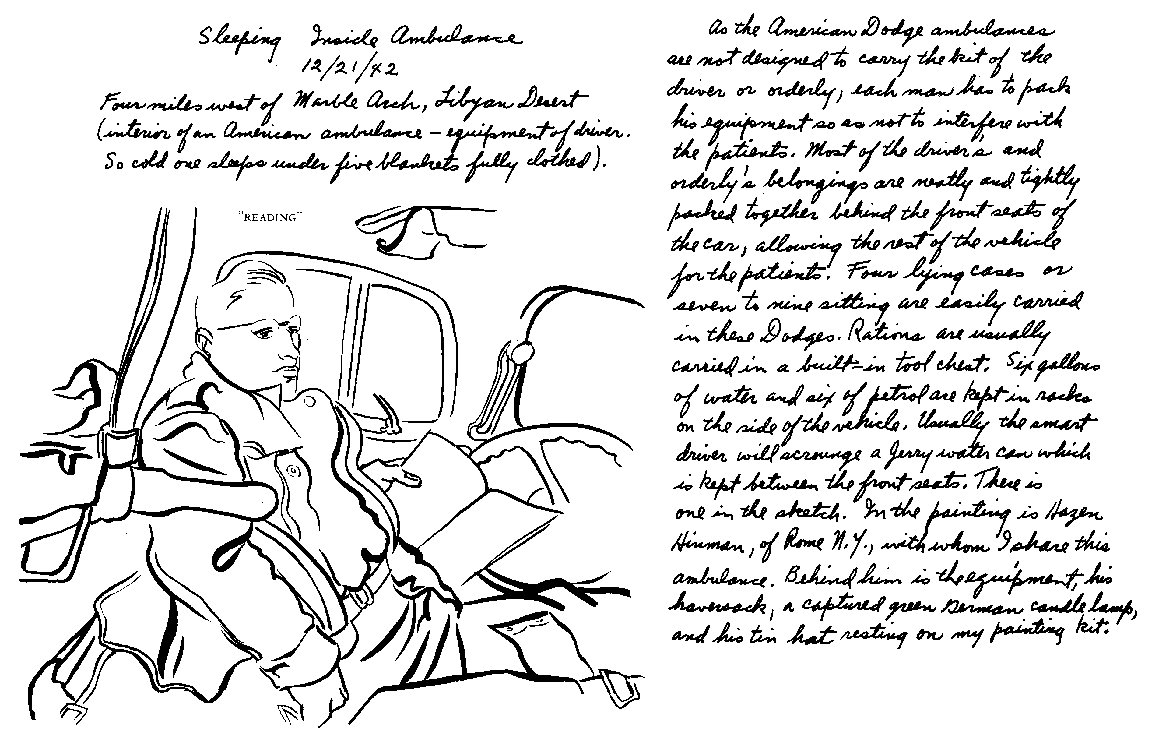 Sleeping Inside Ambulance
12/21/42
Four miles west of Marble Arch, Libyan Desert
(interior of an American ambulance – equipment of driver.
So cold one sleeps under five blankets fully clothed).
"READING"
As the American Dodge ambulances
are not designed to carry the kit of the
driver or orderly, each man has to pack
his equipment so as not to interfere with
the patients. Most of the driver's and
orderly's belongings are neatly and tightly
packed together behind the front seats of
the car, allowing the rest of the vehicle
for the patients. Four lying cases or
seven to nine sitting are easily carried
in these Dodges. Rations are usually
carried in a built-in tool chest. Six gallons
of water and six of petrol are kept in racks
on the side of the vehicle. Usually the smart
driver will scrounge a Jerry water can which
is kept between the front seats. There is
one in the sketch. In the painting is Hazen
Hinman, of Rome N.Y., with whom I share this
ambulance. Behind him is the equipment, his
haversack, a captured green German candle lamp,
and his tin hat resting on my painting kit.